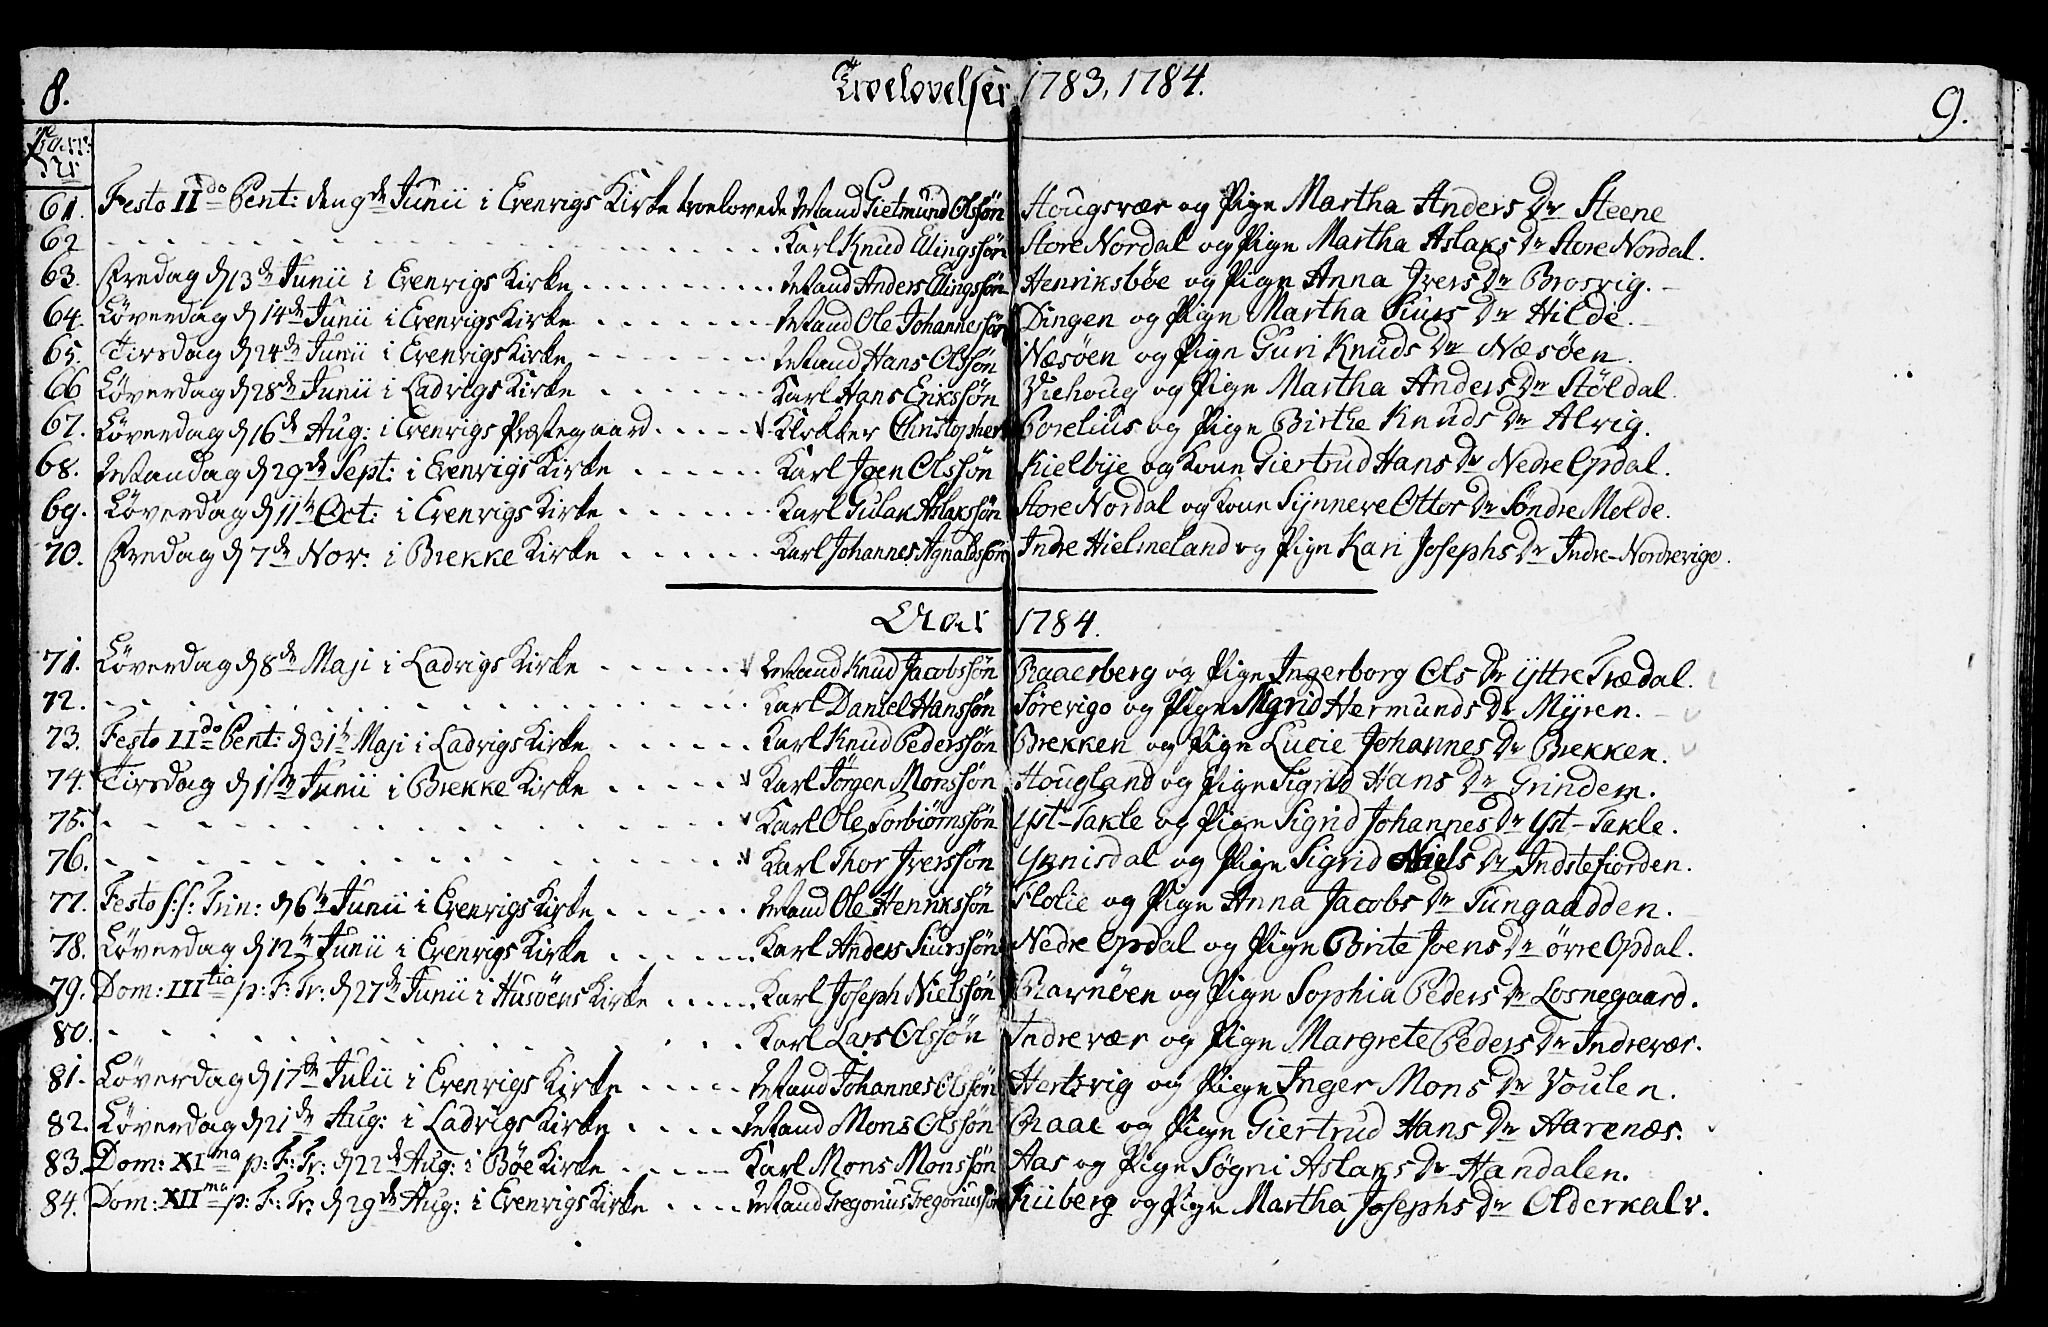 8. Troelovelser 1783, 1784. 9.
Parr:
Nr
61. Festo II do Pent: den 9 de Junii i Evenvigs Kirke troelovede Mand Gietmund Olssøn Hougsvær og Pige Martha Anders Dr Steene
62 - - - Karl Knud Elingssøn Store Nordal og Pige Martha Aslaks Dr Store Nordal.
63. Fredag d 13 de Junii i Evenvigs Kirke - - - Mand Anders Elingssøn Henriksbøe og Pige Anna Ivers Dr Brosvig.
64. Løverdag d 14 de Junii i Evenvigs Kirke - - - Mand Ole Johannessøn Dingen og Pige Martha Siurs Dr Hilde.
65. Tirsdag d 24 de Junii i Evenvigs Kirke - - - Mand Hans Olssøn Næsøen og Pige Guri Knuds Dr Næsøen.
66 Løverdag d 28 de Junii i Ladvigs Kirke - - - Karl Hans Erikssøn Viehoug og Pige Martha Anders Dr Støldal.
67. Løverdag d 16 de Aug: i Evenvigs Præstegaard - - - Klokker Christopher Borelius og Pige Birthe Knuds Dr Alvig.
68. Mandag d 29 de Sept: i Evenvigs Kirke - - - Karl Joen Olssøn Kielbye og Kone Giertrud Hans Dr Nedre Opdal.
69. Løverdag d 11 te Oct: i Evenvigs Kirke - - - Karl Gulak Aslakssøn Store Nordal og Kone Synneve Ottor Dr Søndre Melde.
70. Fredag d 7 de Nov: i Brekke Kirke - - - Karl Johannes Agnaldssøn Indre Hielmeland og Pige Kari Josephs Dr Indre-Nordrevigo.
Aar 1784.
71. Løverdag d 8 de Maji i Ladvigs Kirke - - - Mand Knud Jacobssøn Raaesberg og Pige Ingerborg Ols Dr Yttre Trædal.
72. - - - Karl Daniel Hanssøn Sørevigo og Pige Magrid Hermunds Dr Myren.
73. Festo II do Pent: d 31 te Maji i Ladvigs Kirke - - - Karl Knud Pederssøn Brekken og Pige Lucie Johannes Dr Brekken.
74. Tirsdag d 1 ste Junii i Brekke Kirke - - - Karl Jørgen Monssøn Hougland og Pige Sigrid Hans Dr Grindem.
75. - - - Karl Ole Torbiørnssøn Yst-Takle og Pige Sigrid Johannes Dr Yst-Takle.
76. - - - Karl Thor Iverssøn Ynnisdal og Pige Sigrid Niels Dr Indstefiorden.
77. Festo s:s: Trin: d 6 te Junii i Evenvigs Kirke - - - Mand Ole Henrikssøn Flolie og Pige Anna Jacobs Dr Tungaadden.
78. Løverdag d 12 te Junii i Evenvigs Kirke - - - Karl Anders Siurssøn Nedre Opdal og Pige Brite Joens Dr Øvre Opdal.
79. Dom: III tia p: F: Tr: d 27 de Junii i Husøens Kirke - - - Karl Joseph Nielssøn Ravnøen og Pige Sophia Peders Dr Losnegaard.
80. - - - Karl Lars Olssøn Indrevær og Pige Margrete Peders Dr Indrevær.
81. Løverdag d 17 de Julii i Evenvigs Kirke - - - Mand Johannes Olssøn Hertzvig og Pige Inger Mons Dr Voulen.
82. Løverdag d 21 de Aug: i Ladvigs Kirke - - - Mand Mons Olssøn Raae og Pige Giertrud Hans Dr Aarenæs.
83. Dom: XI ma p: F: Tr: d 22 de Aug: i Bøe Kirke - - - Karl Mons Monssøn Aas og Pige Søgni Aslaks Dr Handalen.
84. Dom: XII ma p: F: Tr: d 29 de Aug: i Evenvigs Kirke - - - Mand Gregorius Gregoriussøn Kiiberg og Pige Martha Josephs Dr Olderkalv.